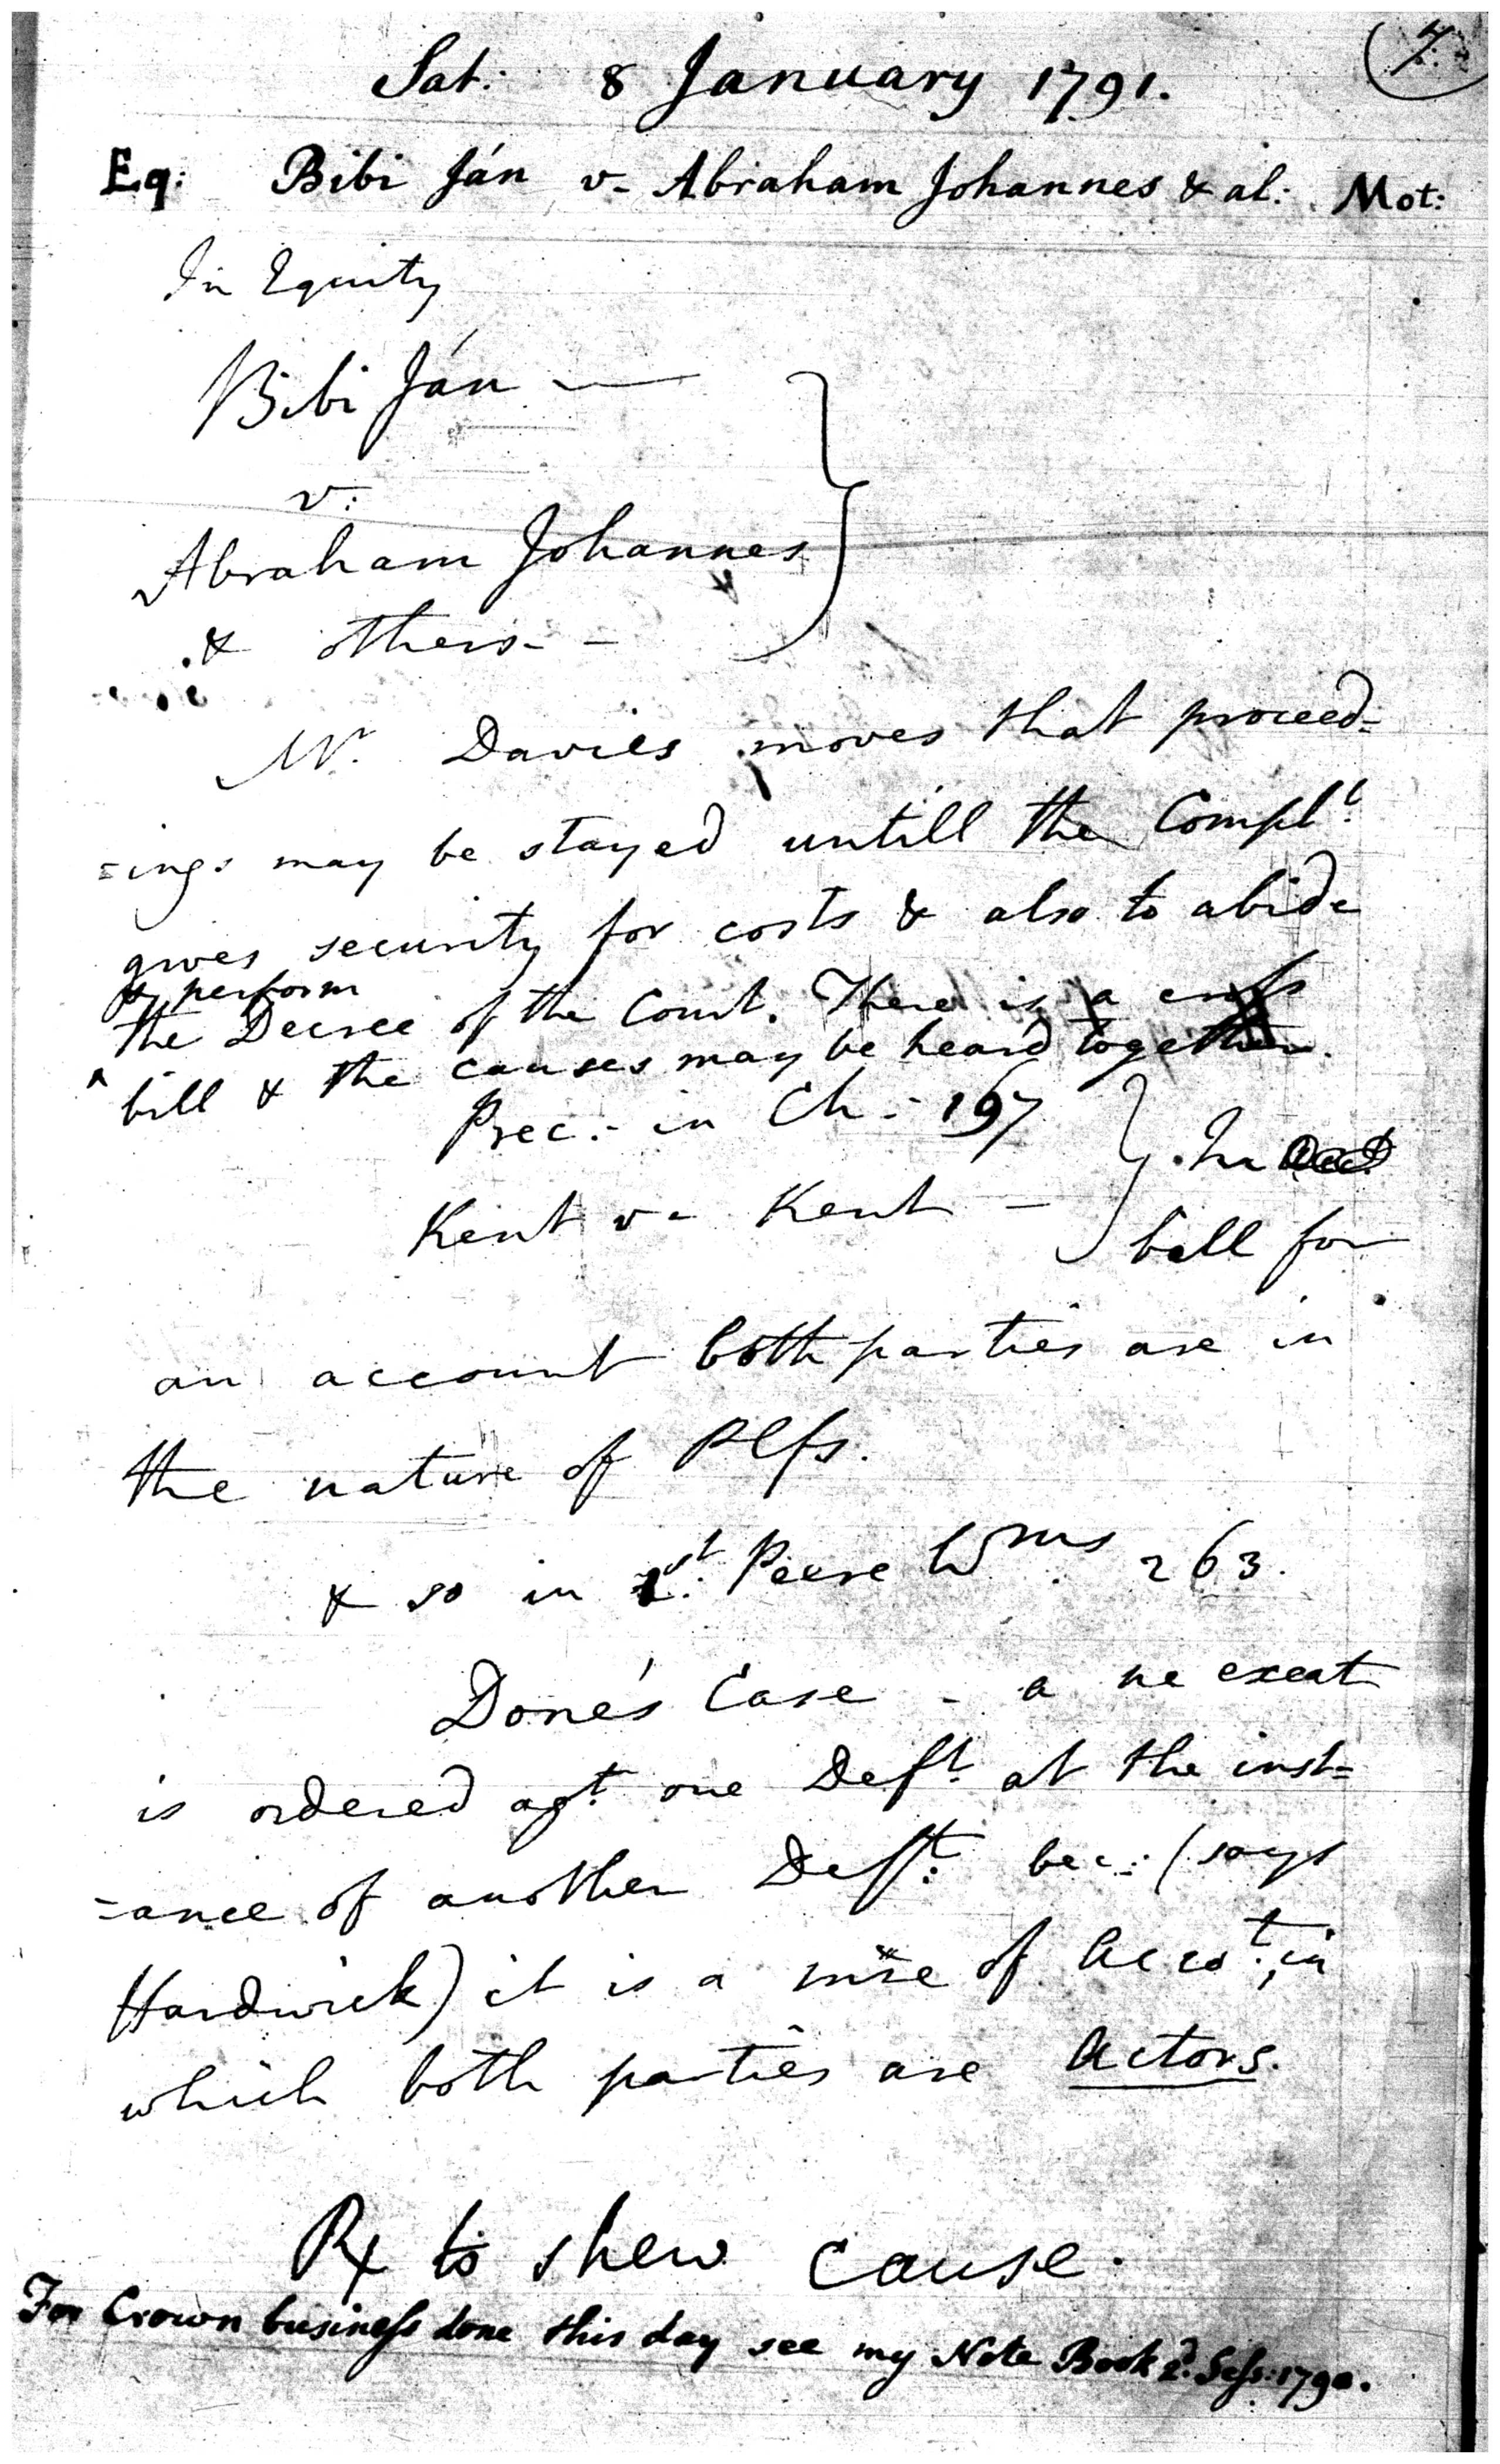 7.
Sat: 8 January 1791.
Eq: Bibi Ján v- Abraham Johannes & al: Mot:
In Equity
Bibi Ján —
v:
Abraham Johannes
& others - -
Mr. Davies moves that proceed=
=ings may be stayed untill the Complt.
gives security for costs & also to abide
& perform
the Decree of the Court. There is a cross
bill & the causes may be heard together.
Prec:- in Ch:- 197
Kent v- Kent — } In
bill for
an account both parties are in
the nature of Plfs.
& so in 1st. Peere Wms. 263.
Done's Case - a ne exeat
is ordered agt. one Deft. at the inst=
=ance of another Deft: bec: (says
Hardwick) it is a of Accot., in
which both parties are Actors.
Rx to shew cause.
For Crown business done this day see my Note Book 2d. Sess: 1790.